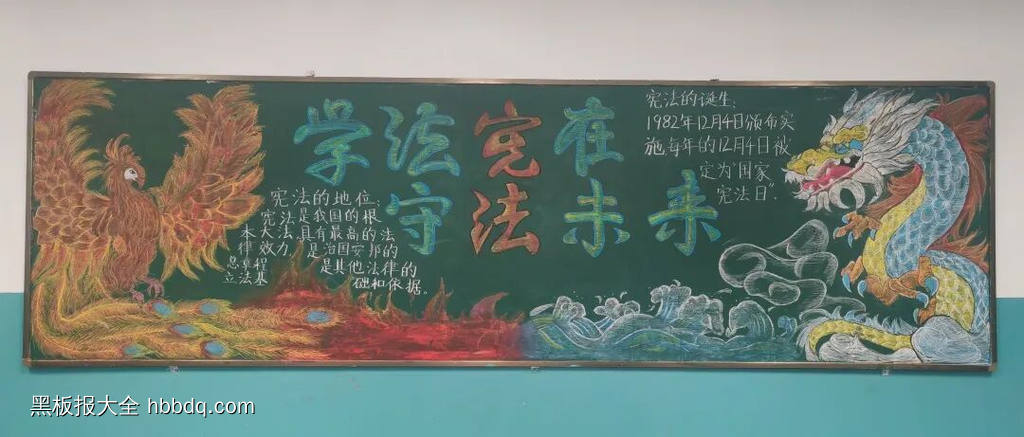 学法宪在
守法未来
宪法的地位:
宪法是我国的根
本大法,具有最高的法
律效力,是治国安邦的
总章程 是其他法律的
立法基 础和依据。
宪法的诞生:
1982年12月4日颁布实
施,每年的12月4日被
定为“国家
宪法日”.
黑板报大全 hbbdq.com